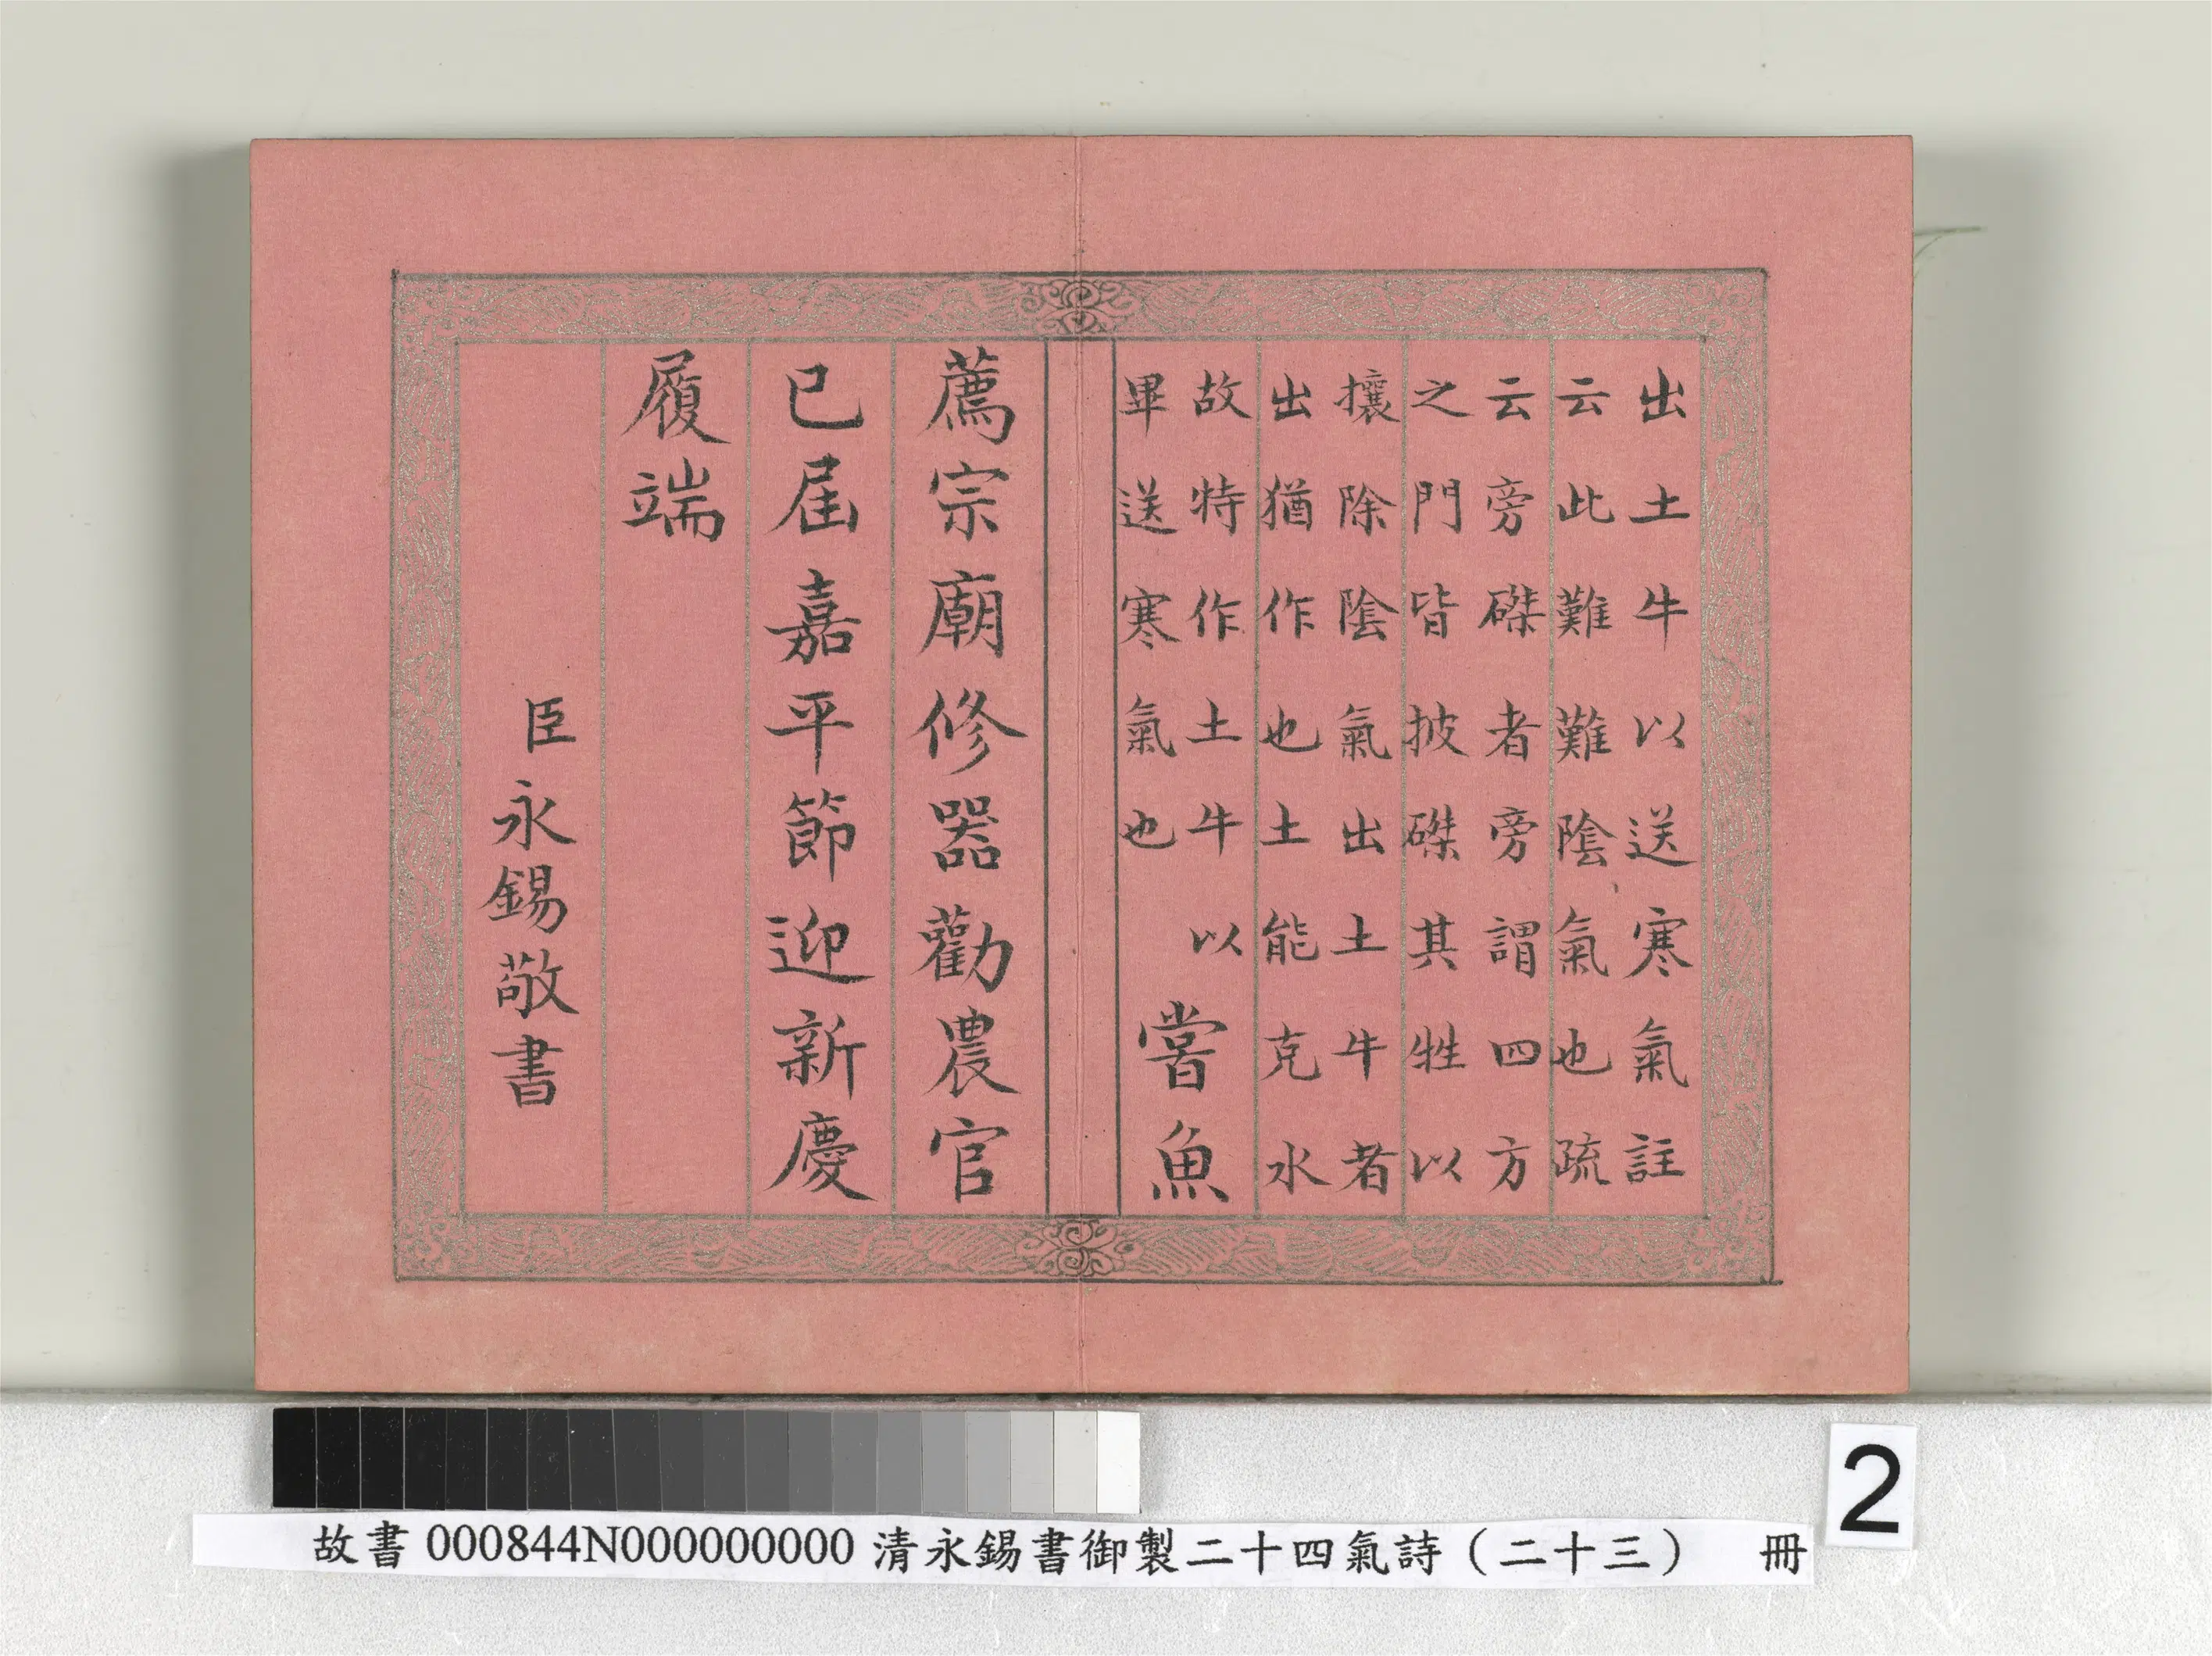 出土牛以送寒氣註
云此難難陰氣也疏
云旁磔者旁謂四方
之門皆披磔其牲以
攘除陰氣出土牛者
出猶作也土能克水
故特作土牛以
畢送寒氣也
嘗魚
薦宗廟修器勸農官
已屆嘉平節迎新慶
履端
臣永錫敬書
2
故書 000844N000000000 清永錫書御製二十四氣詩（二十三） 冊